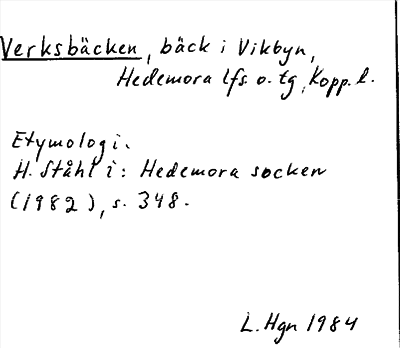 Verksbäcken, bäck i Vikbyn,
Hedemora lfs. o. tg, Kopp. l.
Etymologi.
H. Ståhl i: Hedemora socken
(1982), s. 348.
L. Hgn 1984